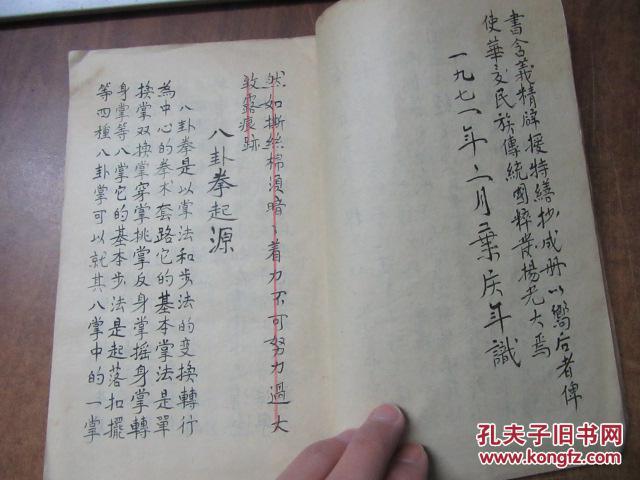 書含義精辟援特繕抄成册以嚮后者俾
使華文民族傳統國粹發揚光大焉
一九七一年二月 慶年識
然如撕丝棉須暗〻着力不可努力過大
致露痕跡
八卦拳起源
八卦拳是以掌法和步法的变换轉行
為中心的拳术套路它的基本掌法是單
换掌双换掌穿掌挑掌反身掌摇身掌轉
身掌等八掌它的基本步法是起落扣擺
等四種八卦掌可以就其八掌中的一掌
孔夫子旧书网
KONGFZ.COM